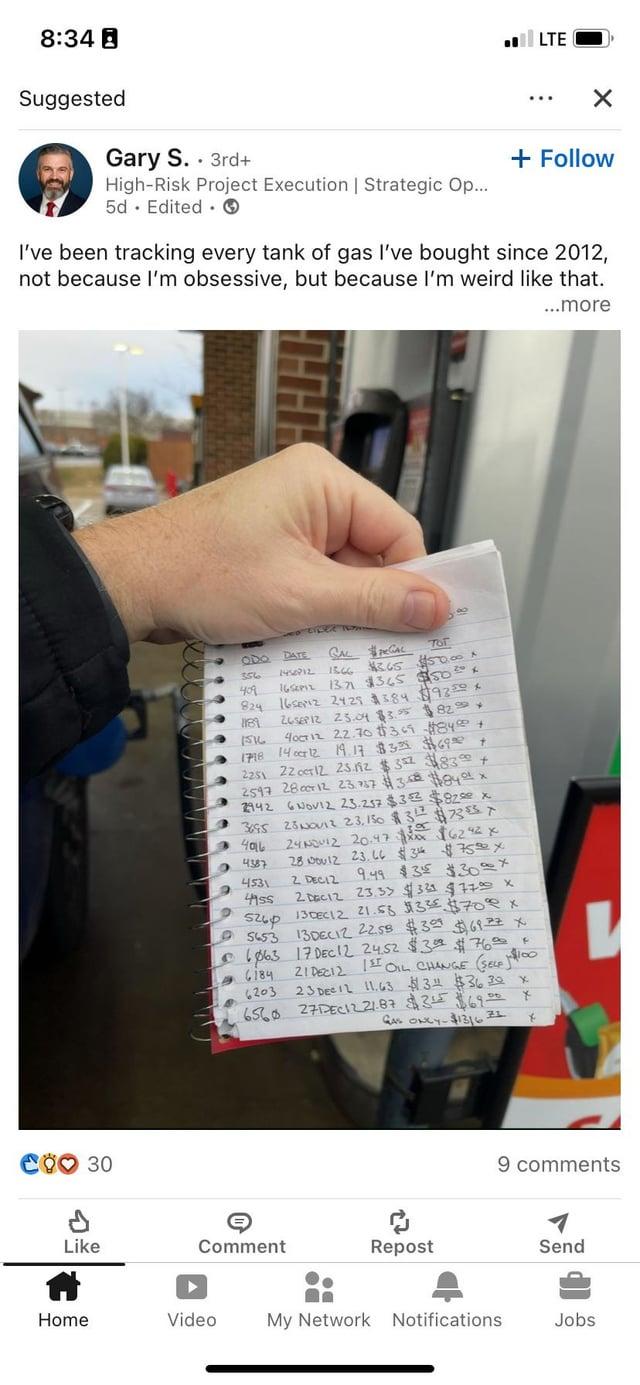 8:34
LTE
Suggested
Gary S. • 3rd+
+ Follow
High-Risk Project Execution | Strategic Op...
5d • Edited •
I've been tracking every tank of gas I've bought since 2012,
not because I'm obsessive, but because I'm weird like that.
...more
ODO DATE GAL $ PeGAL TOT
356 14SEP12 13.66 $3.65 $50.00 x
409 16SEP12 13.71 $3.65 $50
824 16SEP12 24.29 $3.84 $93.50 x
1189 26SEP12 23.04 $82.00 x
1516 4OCT12 22.70 $3.69 $84.00 +
1718 14OCT12 19.17 $69.00 +
2251 22OCT12 $3.52 $83.00 +
2597 28OCT12 23.737 $84.01 x
2942 6NOV12 23.257 $3.52 $82.00 x
3695 23NOV12 23.150 $3.17 $73.55
4016 24NOV12 20.47 $62.42 x
4387 28NOV12 23.66 $75.00 x
4531 2DEC12 9.49 $30.00 x
4955 2DEC12 23.33 $77.00 x
13DEC12 21.53 $3.25 $70.00 x
5653 13DEC12 22.58 $3.09 $69.77 x
6063 17DEC12 24.52 $76.00
6184 21DEC12 1ST OIL CHANGE (SELF) $100
6203 23DEC12 11.63 $36.30 x
6560 27DEC12 21.87 $3.15 $69.00 x
GAS ONLY - $1316.71 x
30
9 comments
Like
Comment
Repost
Send
Home
Video
My Network
Notifications
Jobs